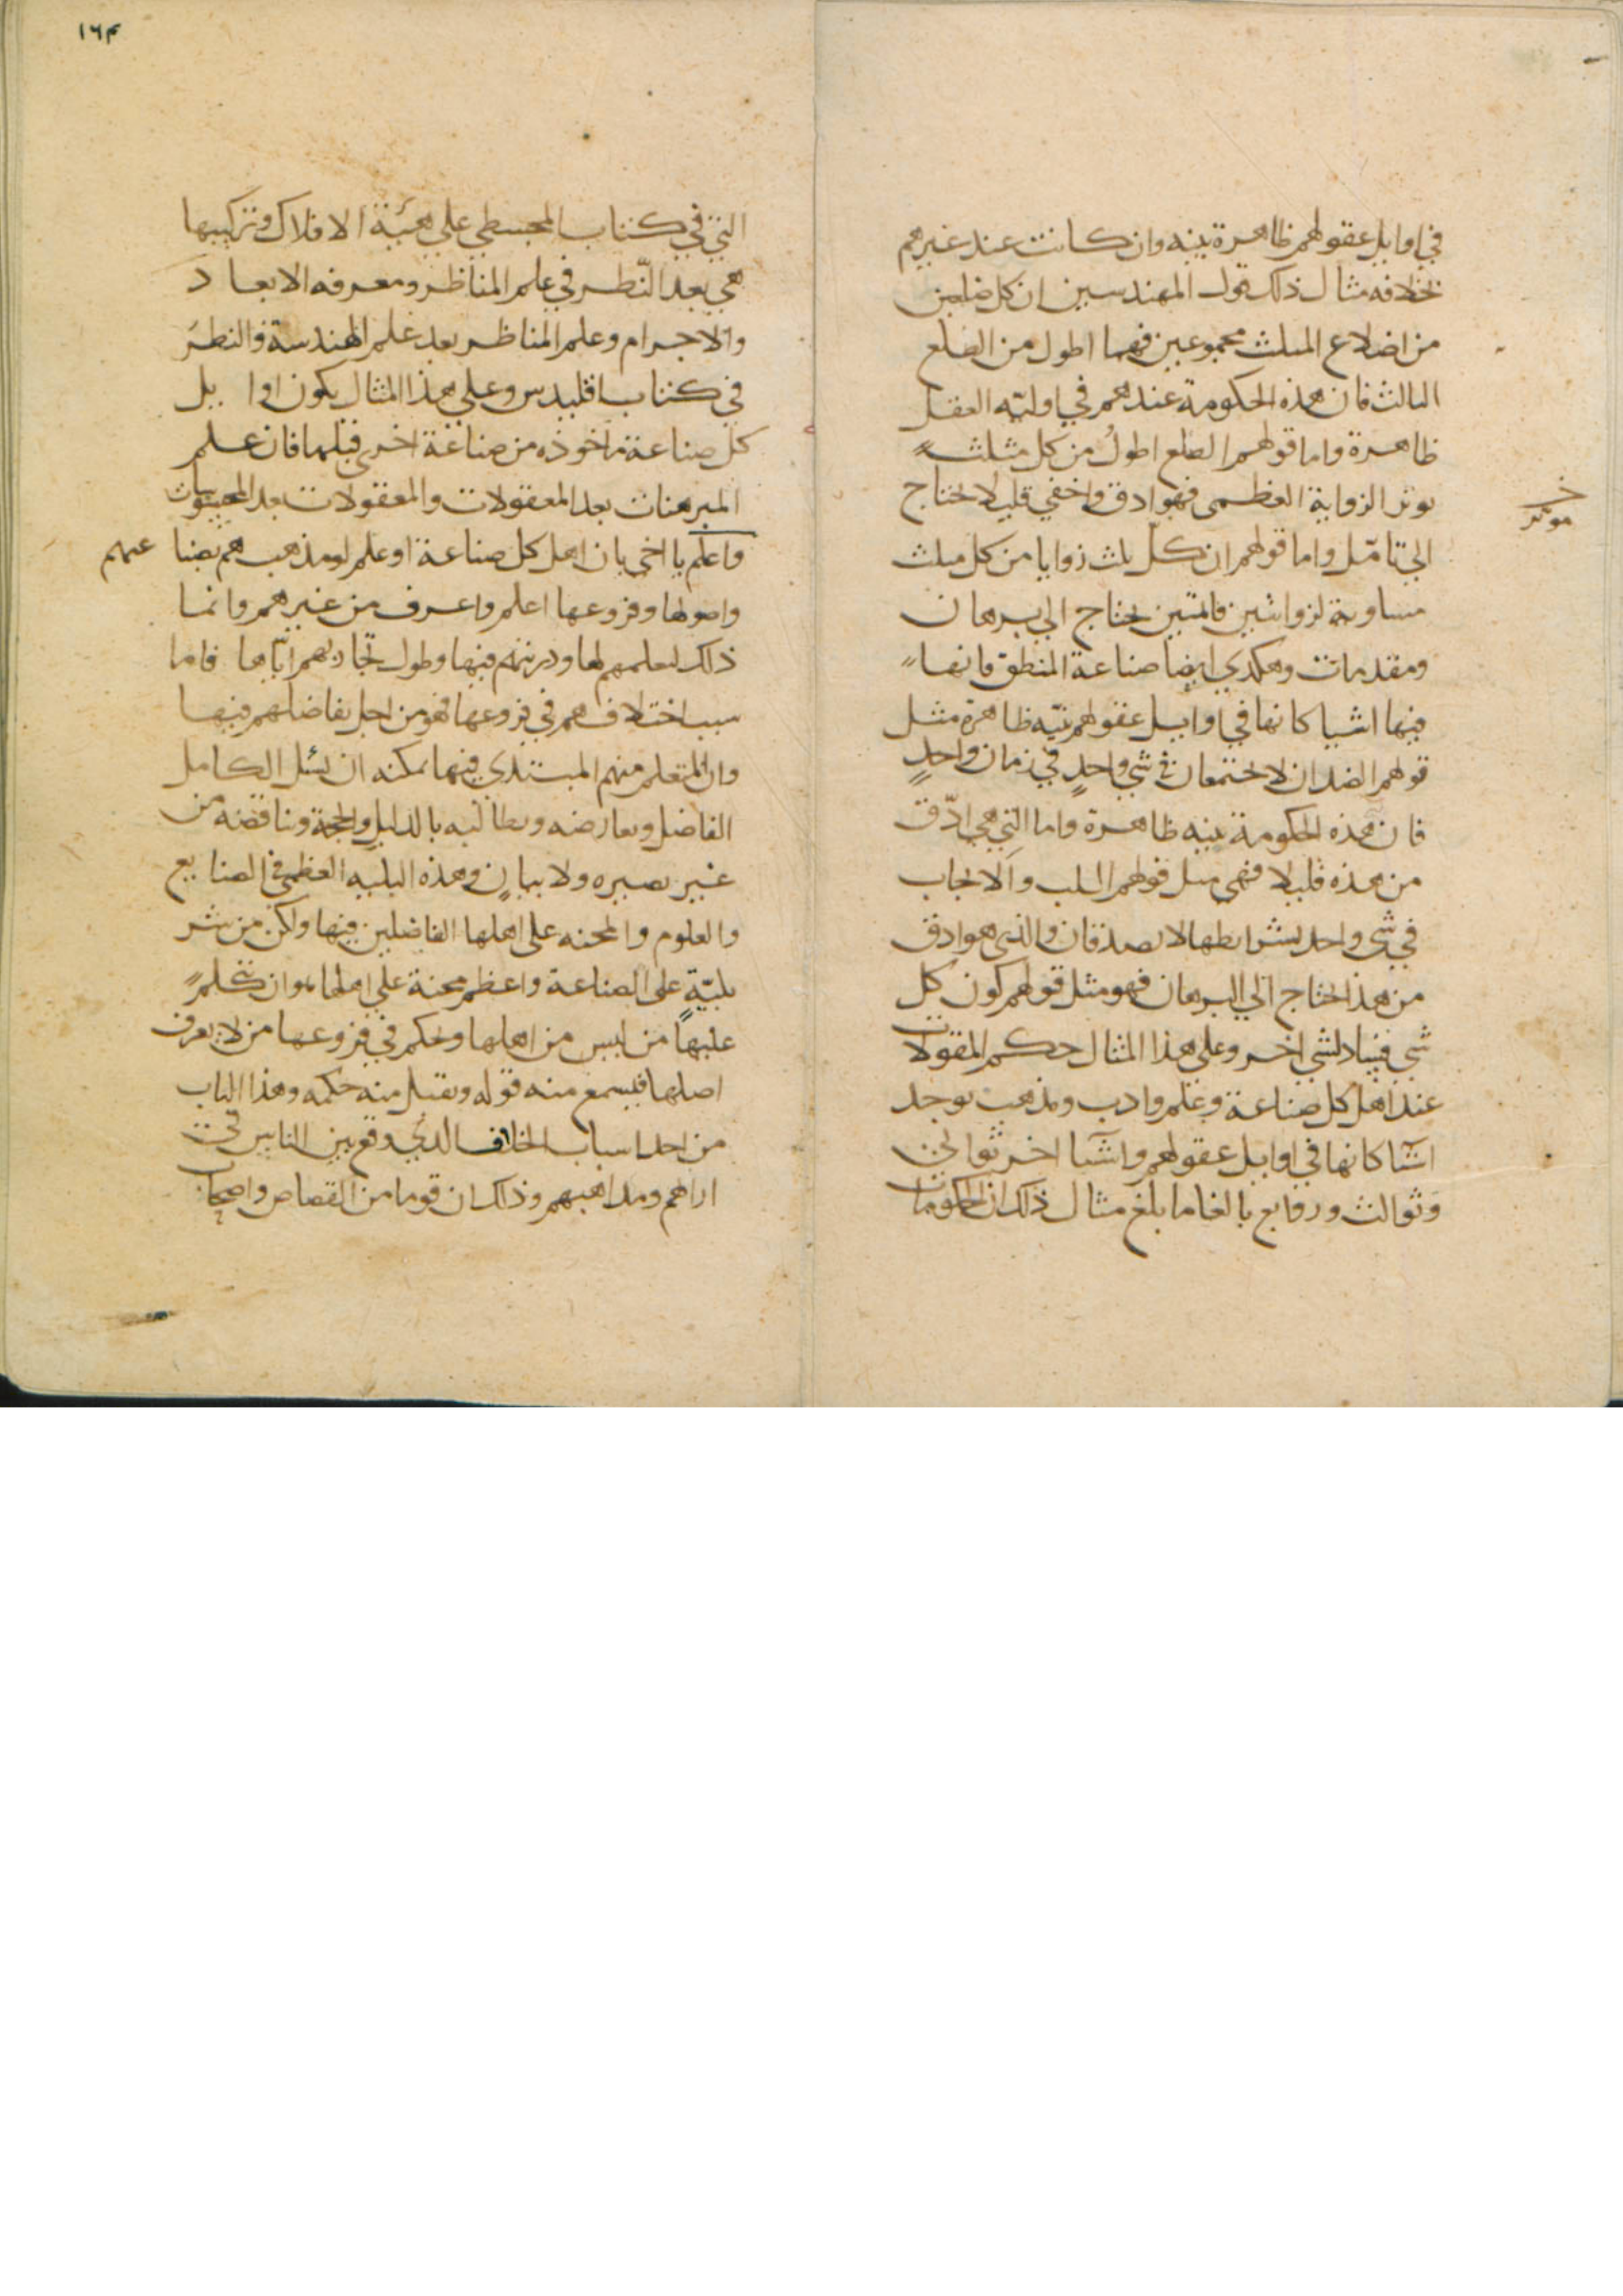 في اوايل عقولهم ظاهرة بينه وان كانت عند غيرهم
بخلافه مثال ذلك قول المهندسين ان كل ضلعين
من اضلاع المثلث مجموعين فهما اطول من الضلع
الثالث فان هذه الحكومة عندهم في اوليّه العقل
ظاهرة واما قولهم الضلع اطولُ من كل مثلث
يوتر الزواية العظمى فهو ادق واخفي قليلا يحتاج
خ
موتر
الى تامّل واما قولهم ان كلّ ثلث زوايا من كل مثلث
مساوية لزوايتين قائمتين يحتاج الي برهان
ومقدمات وهكذي ايضا صناعة المنطق فانها
فيها اشيا كانها في اوايل عقولهم بيّنه ظاهرة مثل
قولهم الضدان لا يجتمعان في شي واحدٍ في زمان واحدٍ
فان هذه الحكومة بينه ظاهرة واما التي هي ادّق
من هذه قليلا فهي مثل قولهم السلب والايجاب
في شي واحد بشرايطها لا يصدقان والذي هو ادق
من هذا يحتاج الي البرهان فهو مثل قولهم كون كل
شي فساد لشي اخر وعلى هذا المثال حكم المقولات
عند اهل كل صناعة وعلم وادب ومذهب يوجد
اشيا كانها في اوايل عقولهم واشيا اخر ثوالي
وثوالث وروابع بالغا ما بلغ مثال ذلك ان الحكومات
١٦٣
التي في كتاب المجسطي علي هيئة الافلاك وتركيبها
هي بعد النّظر في علم المناظر ومعرفه الابعاد
والاجرام وعلم المناظر بعد علم الهندسة والنظر
في كتاب اقليدس وعلي هذا المثال يكون اوايل
كل صناعة ماخوذه من صناعة اخرى قبلها فان علم
المبرهنات بعد المعقولات والمعقولات بعد المحسوسات
واعلم يا اخي بان اهل كل صناعة او علم او مذهب هم بصنا عهم
واصولها وفروعها اعلم واعرف من غيرهم وانما
ذلك لتعلمهم لها ودربتهم فيها وطول تجاربهم ايّاها فاما
سبب اختلافهم في فروعها فهو من اجل تفاضلهم فيها
وان المتعلم منهم المبتدي فيها يمكنه ان يسئل الكامل
الفاضل ويعارضه ويطالبه بالدليل والحجة ويناقضه من
غير بصيره ولا بيان وهذه البليه العظمى في الصنايع
والعلوم والمحنه على اهلها الفاضلين فيها ولكن من شر
بليّةٍ على الصناعة واعظم محنة علي اهلها هو ان يتكلم
عليها من ليس من اهلها ويحكم في فروعها من لا يعرف
اصلها فيسمع منه قوله ويقبل منه حكمه وهذا الباب
من احد اسباب الخلاف الذي وقع بين الناس في
اراهم ومذاهبهم وذلك ان قوما من القصاص واصحاب